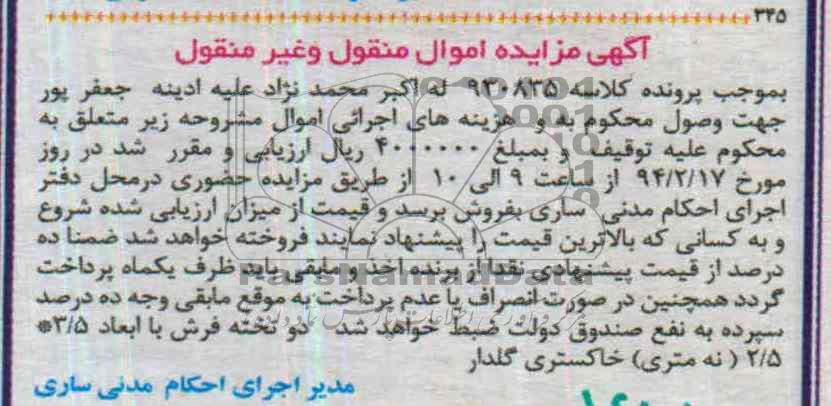 ۳۴۵
آگهی مزایده اموال منقول وغیر منقول
بموجب پرونده کلاسه ۹۳۰۸۳۵ له اکبر محمد نژاد علیه ادینه جعفر پور
جهت وصول محکوم به و هزینه های اجرائی اموال مشروحه زیر متعلق به
محکوم علیه توقیف و بمبلغ ۴۰۰۰۰۰۰ ریال ارزیابی و مقرر شد در روز
مورخ ۹۴/۲/۱۷ از ساعت ۹ الی ۱۰ از طریق مزایده حضوری درمحل دفتر
اجرای احکام مدنی ساری بفروش برسد و قیمت از میزان ارزیابی شده شروع
و به کسانی که بالاترین قیمت را پیشنهاد نمایند فروخته خواهد شد ضمنا ده
درصد از قیمت پیشنهادی نقدا از برنده اخذ و مابقی باید ظرف یکماه پرداخت
گردد همچنین در صورت انصراف یا عدم پرداخت به موقع مابقی وجه ده درصد
سپرده به نفع صندوق دولت ضبط خواهد شد - دو تخته فرش با ابعاد ۳/۵*
۲/۵ ( نه متری) خاکستری گلدار
مدیر اجرای احکام مدنی ساری
ParsNamadData